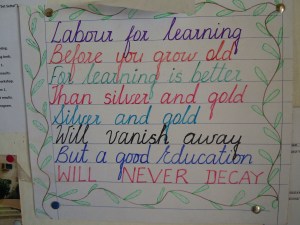 Labour for learning
Before you grow old
For learning is better
Than silver and gold
Silver and gold
Will vanish away
But a good Education
WILL NEVER DECAY